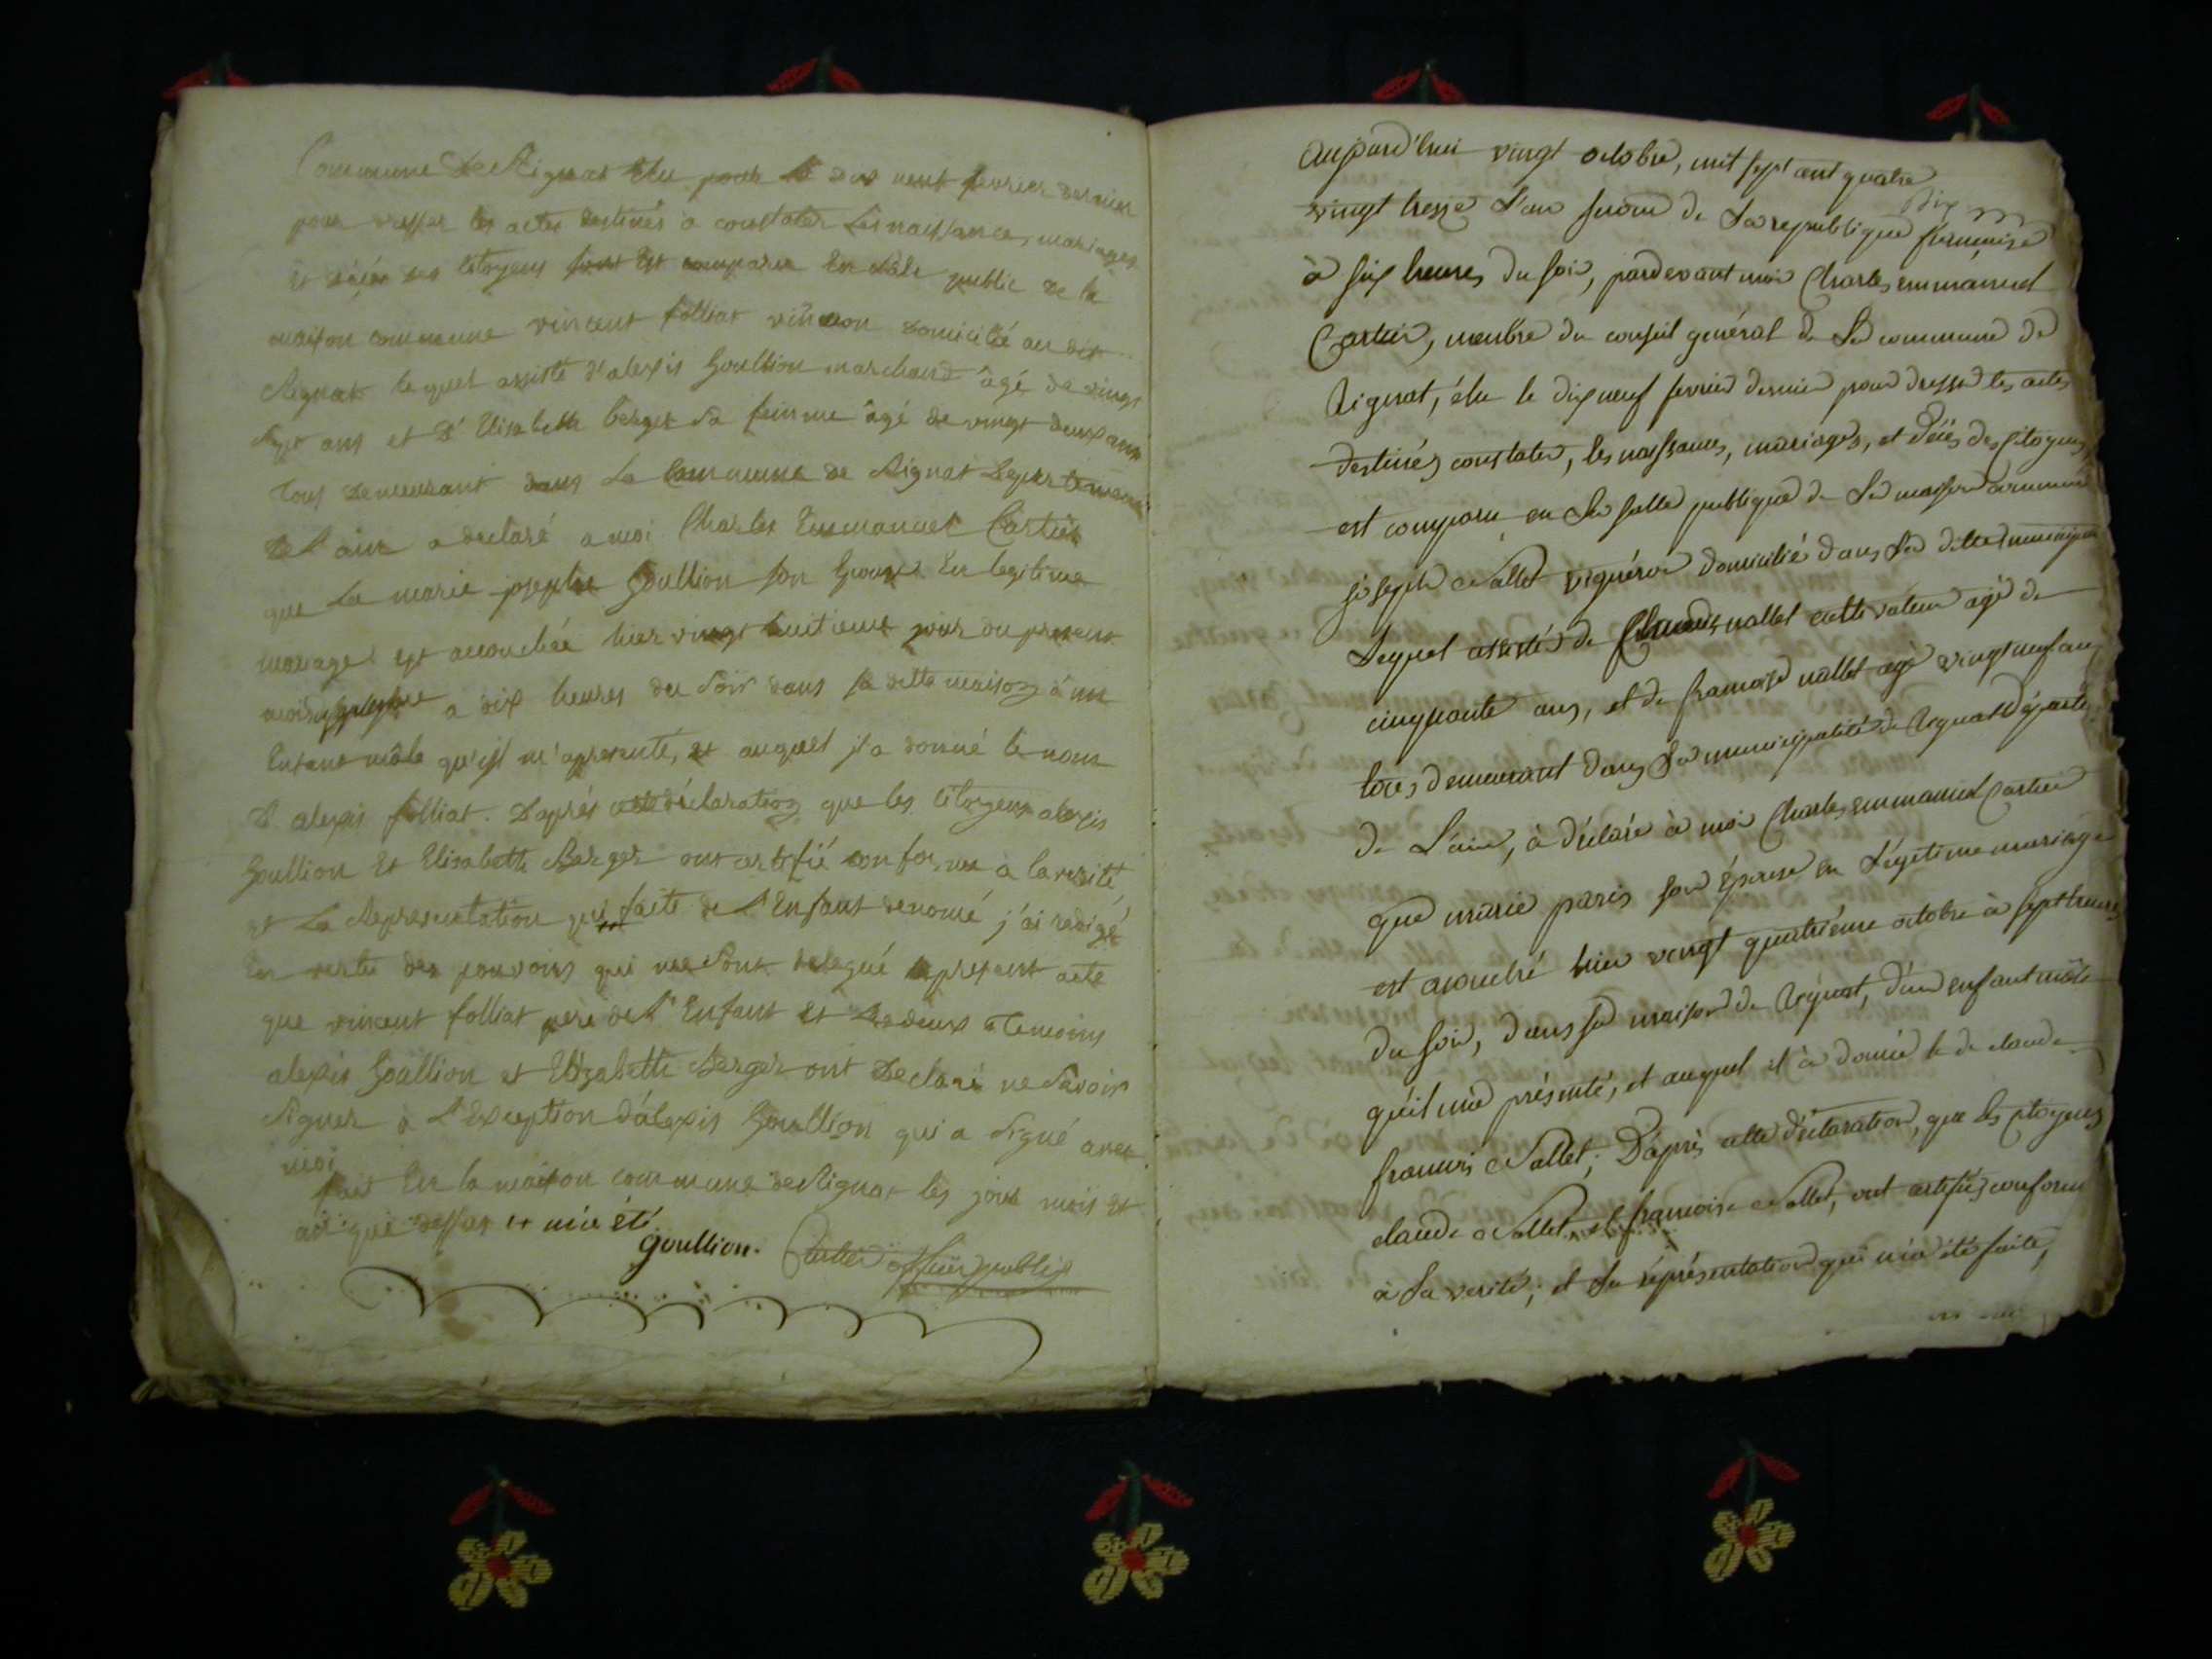 Commune De Rignat Elu pour le dix neuf fevrier dernier
pour dresser les actes destinés a constater Les naissances, mariages
et décés des Citoyens Est comparu En Sale public de la
maison commune vincent folliat vineron Domicilié au dit
Rignat lequel assisté d'alexis Goullion marchand âgé de vingt
Sept ans et d'Elisabeth berger Sa femme âgé de vingt deux ans
Tous Demeurant dans La Commune de Rignat Departement
de L'ain a declaré a moi Charles Emmanuel Cartier
que La marie josephte Goullion son Epouse En legitime
mariage est accouchée hier vingt huitieme jour du present
mois a dix heures du Soir dans sa ditte maison d'un
Enfant mâle qu'il m'a presenté, et auquel il a donné le nom
D'alexis folliat. D'aprés cette déclaration que les Citoyens alexis
Goullion Et Elisabeth Berger ont certifié conforme a la verité
et La Representation qui faite de L'Enfant denomé j'ai redigé
En vertu des pouvoirs qui me Sont delegué le present acte
que vincent folliat pere de L'Enfant Et Les deux Temoins
alexis Goullion et Elizabeth Berger ont Declaré ne Savoir
Signer à L'Exception d'alexis Goullion qui a Signé avec
moi
fait En la maison commune de Rignat les jour mois et
an que dessus ++ m'a été
Goullion. Cartier officier public
Aujourd'huy vingt octobre, mil sept cent quatre
vingt treize L'an second de La republique française
à six heures du soir, pardevant moi Charles emmanuel
Cartier, membre du conseil général de La commune de
Rignat, élu le dix neuf fevrier dernier pour dresser les actes
destinés constater, les naissances, mariages, et décés des Citoyens
est comparu en La salle publique de La maison commune
joseph Nallet vigneron domicilié dans La ditte municipa
Lequel assisté de Claude nallet cultivateur agé de
cinquante ans, et de françoise nallet agé vingt neuf ans
tous demeurant dans La municipalité de Rignat Départe
de L'ain, à déclaré à moi Charles emmanuel Cartier
que marie paris son épouse en Légitime mariage
est acouché hier vingt quatriéme octobre à sept heures
du soir, dans sa maison de Rignat, d'un enfant mâle
qu'il m'a présenté, et auquel il à donné le de claude
francois Nallet; D'après cette déclaration, que les citoyens
claude Nallet et francoise Nallet, ont certifié conforme
à La verité; et La représentation qui m'a été faite,